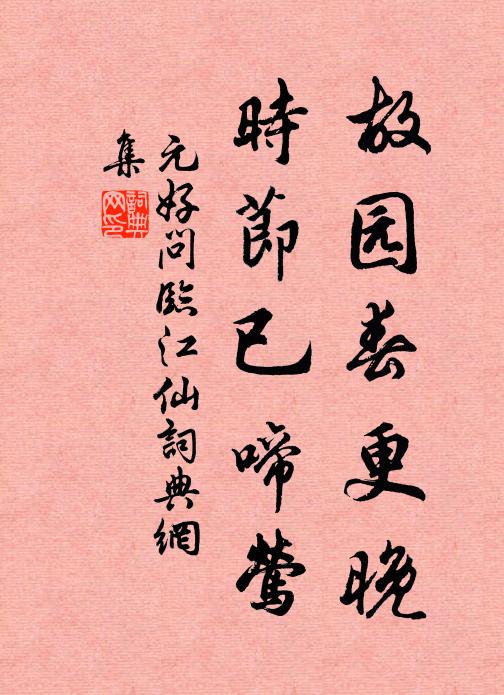 故园春更晚
時節已啼鶯
元好问臨江仙詞典網
集
詞典
网印